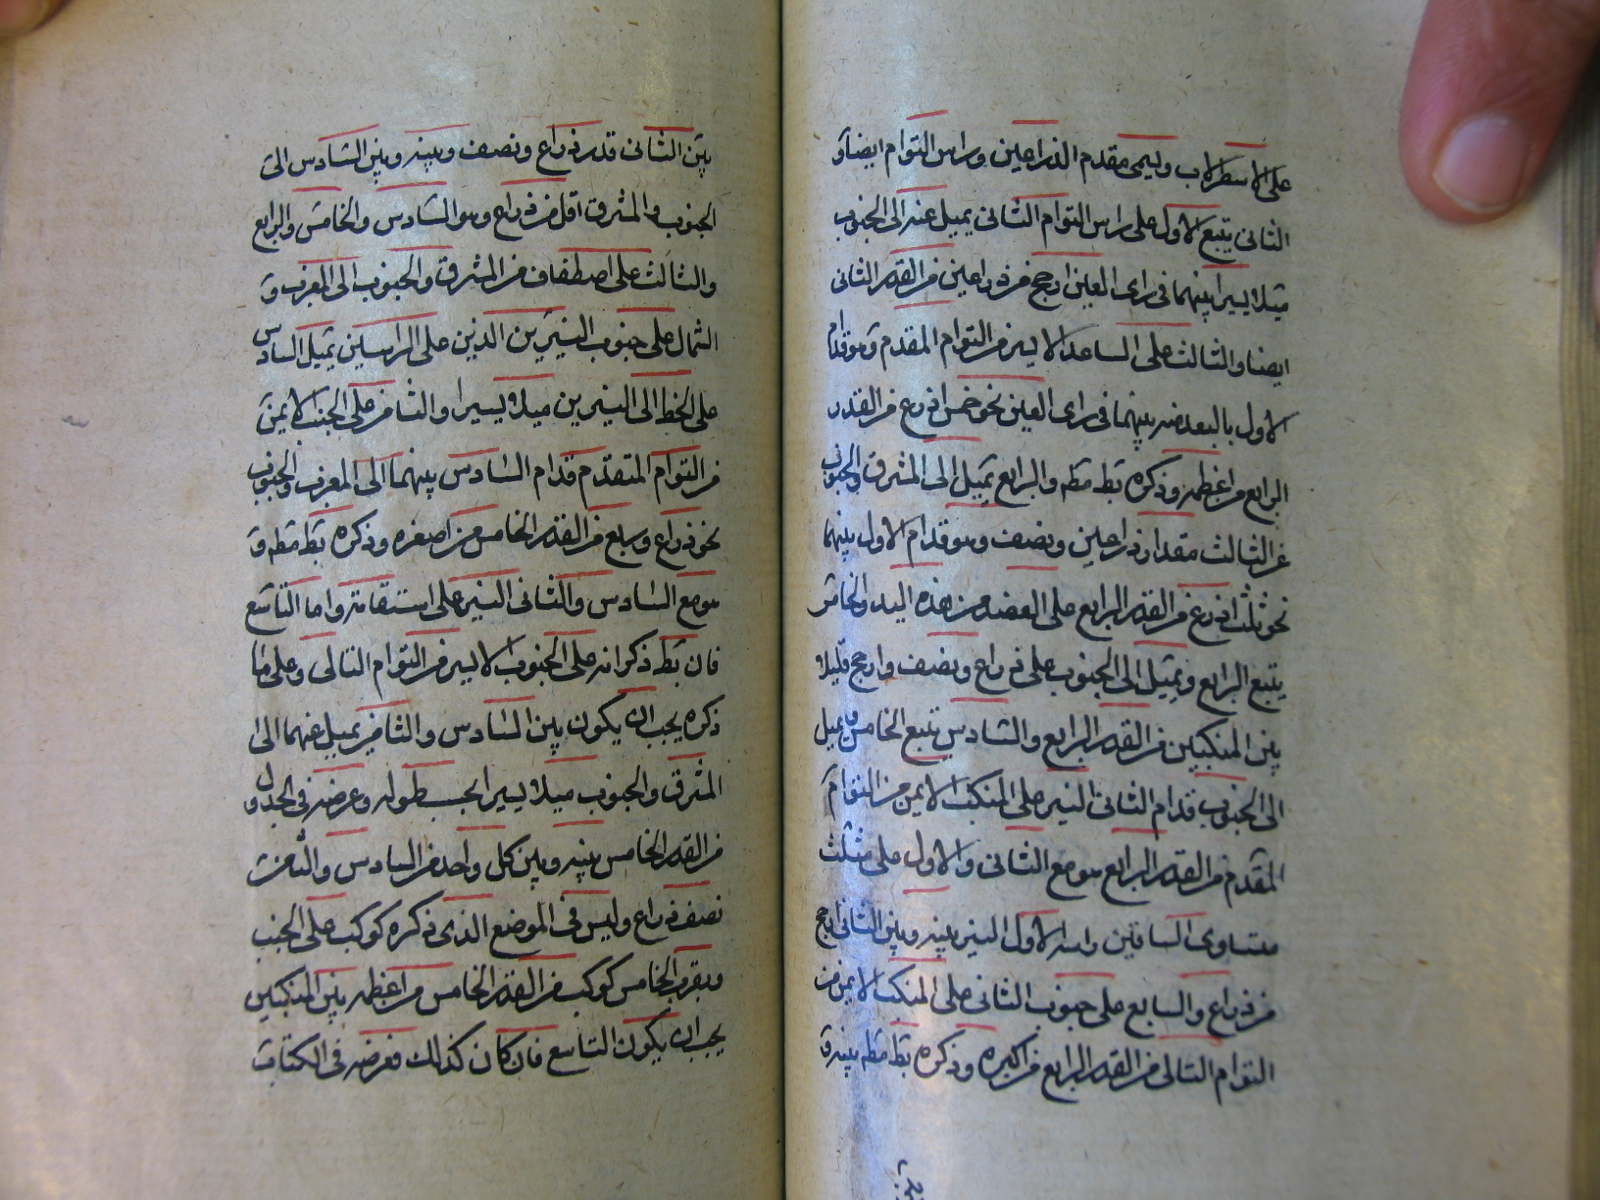 على الاسطرلاب ويسمى مقدم الذراعين وراس التوام ايضا و
الثانى يتبع الاول على راس التوام الثانى يميل عنه الى الجنوب
ميلا يسيرا بينهما فى راى العين ارجح من ذراعين من القدر الثانى
ايضا والثالث على الساعد الايسر من التوام المقدم وهو قدام
الاول بالبعد منه بينهما فى راى العين نحو خمس اذرع من القدر
الرابع من اعظمه وذكره بط مطه والرابع يميل الى المشرق والجنوب
عن الثالث مقدار ذراعين ونصف وهو قدام الاول بينهما
نحو ثلث اذرع من القدر الرابع على العضد من هذه اليد والخامس
يتبع الرابع ويميل الى الجنوب على ذراع ونصف وارجح قليلا
بين المنكبين من القدر الرابع والسادس يتبع الخامس يميل
الى الجنوب قدام الثانى النير على المنكب الايمن من التوام
المقدم من القدر الرابع وهو مع الثانى والاول على مثلث
متساوى الساقين راسه الاول النير بينه وبين الثانى ارجح
من ذراع والسابع على جنوب الثانى على المنكب الايمن من
التوام التالى من القدر الرابع من اكبره وذكره بط مطه بينه و
بين الثانى قدر ذراع ونصف وبينه وبين السادس الى
الجنوب والمشرق اقل من ذراع وهو السادس والخامس والرابع
والثالث على اصطفاف من المشرق والجنوب الى المغرب و
الشمال على جنوب النيرين الذين على الراسين يميل السادس
على الخط الى النيرين ميلا يسيرا والثامن على الجنب الايمن
من التوام المتقدم قدام السادس بينهما الى المغرب والجنوب
نحو ذراع وربع من القدر الخامس من اصغره وذكره بط مطه و
هو مع السادس والثانى النير على استقامة واما التاسع
فان بط ذكر انه على الجنوب الايسر من التوام التالى وعلى ما
ذكره يجب ان يكون بين السادس والثامن يميل عنهما الى
المشرق والجنوب ميلا يسيرا بحسب طوله وعرضه فى الجدول
من القدر الخامس بينه وبين كل واحد من السادس والثامن
نصف ذراع وليس فى الموضع الذى ذكره كوكب على الجنب
وبقرب الخامس كوكب من القدر الخامس من اعظمه بين المنكبين
يجب ان يكون التاسع فان كان كذلك فعرضه فى الكتاب